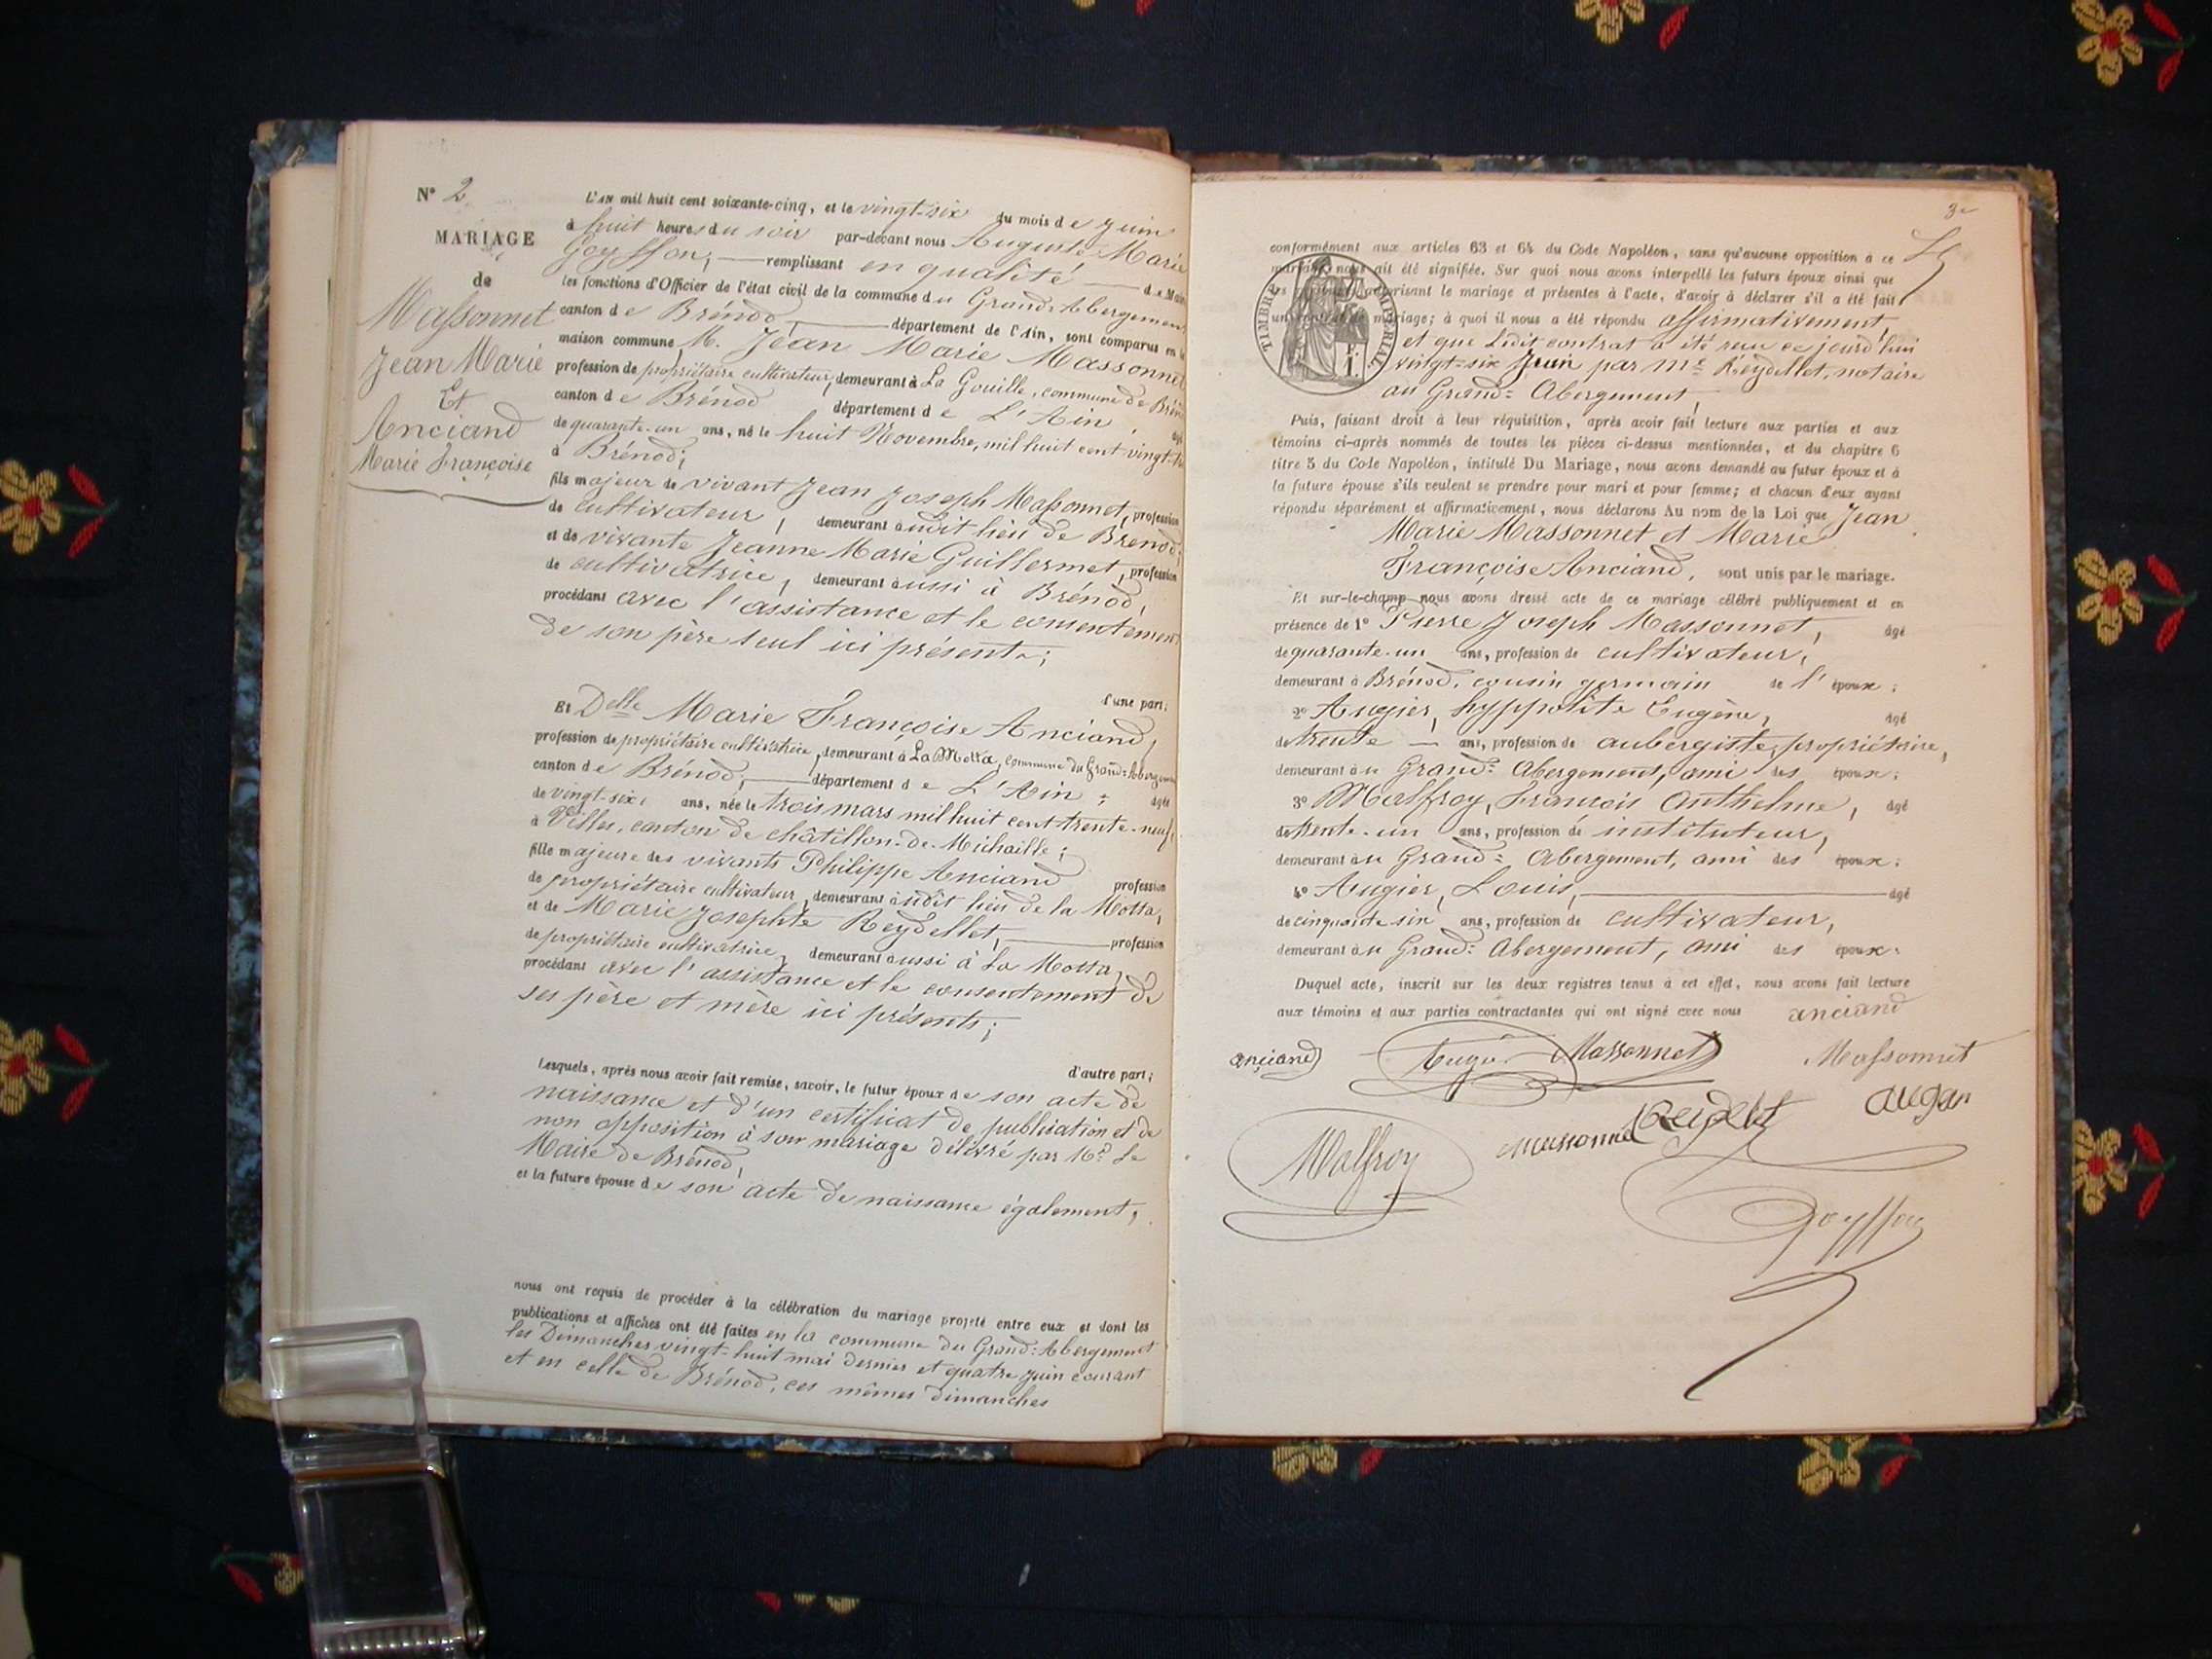 N° 2
MARIAGE
de
Massonnet
Jean Marie
Et
Anciand
Marie Françoise
L'AN mil huit cent soixante-cinq, et le vingt-six du mois de Juin
à huit heures du soir par-devant nous Auguste Marie
Goyffon, remplissant en qualité de Maire
les fonctions d'Officier de l'état civil de la commune du Grand-Abergement
canton de Brénod, département de l'Ain, sont comparus en la
maison commune, M. Jean Marie Massonnet
profession de propriétaire cultivateur, demeurant à La Gouille, commune de Brénod
canton de Brénod département de L'Ain, âgé
de quarante-un ans, né le huit Novembre, mil huit cent vingt-
à Brénod;
fils majeur de vivant Jean Joseph Massonnet, profession
de cultivateur, demeurant audit lieu de Brénod;
et de vivante Jeanne Marie Guillermet, profession
de cultivatrice, demeurant aussi à Brénod,
procédant avec l'assistance et le consentement
de son père seul ici présent;
d'une part;
Et Delle Marie Françoise Anciand,
profession de propriétaire cultivatrice, demeurant à La Motta, commune du Grand-Abergement
canton de Brénod, département de L'Ain; âgée
de vingt-six, ans, née le trois mars mil huit cent trente-neuf,
à Villes, canton de châtillon-de-Michaille;
fille majeure des vivants Philippe Anciand profession
de propriétaire cultivateur, demeurant audit lieu de la Motta,
et de Marie Josephte Reydellet, profession
de propriétaire cultivatrice, demeurant aussi à La Motta,
procédant avec l'assistance et le consentement de
ses père et mère ici présents;
d'autre part;
Lesquels, après nous avoir fait remise, savoir, le futur époux de son acte de
naissance et d'un certificat de publication et de
non opposition à son mariage délivré par Mr Le
Maire de Brénod,
et la future épouse de son acte de naissance également,
nous ont requis de procéder à la célébration du mariage projeté entre eux et dont les
publications et affiches ont été faites en la commune du Grand-Abergement
les Dimanches vingt-huit mai dernier et quatre juin courant
et en celle de Brénod, ces mêmes dimanches
3
conformément aux articles 63 et 64 du Code Napoléon, sans qu'aucune opposition à ce
mariage nous ait été signifiée. Sur quoi nous avons interpellé les futurs époux ainsi que
les autorisant le mariage et présentes à l'acte, d'avoir à déclarer s'il a été fait
un contrat de mariage; à quoi il nous a été répondu affirmativement,
TIMBRE IMPÉRIAL
et que Ledit contrat a été reçu ce jourd'hui
vingt-six Juin par Me Reydellet, notaire
au Grand-Abergement,
Puis, faisant droit à leur réquisition, après avoir fait lecture aux parties et aux
témoins ci-après nommés de toutes les pièces ci-dessus mentionnées, et du chapitre 6
titre 5 du Code Napoléon, intitulé Du Mariage, nous avons demandé au futur époux et à
la future épouse s'ils veulent se prendre pour mari et pour femme; et chacun d'eux ayant
répondu séparément et affirmativement, nous déclarons Au nom de la Loi que Jean
Marie Massonnet et Marie
Françoise Anciand, sont unis par le mariage.
Et sur-le-champ nous avons dressé acte de ce mariage célébré publiquement et en
présence de 1° Pierre Joseph Massonnet, âgé
de quarante-un ans, profession de cultivateur,
demeurant à Brénod, cousin germain de l'époux;
2° Augier, hyppolite Eugène, âgé
de trente ans, profession de aubergiste, propriétaire,
demeurant au Grand-Abergement, ami des époux;
3° Malfroy, François Anthelme, âgé
de trente-un ans, profession de instituteur,
demeurant au Grand-Abergement, ami des époux;
4° Augier, Louis, âgé
de cinquante six ans, profession de cultivateur,
demeurant au Grand-Abergement, ami des époux.
Duquel acte, inscrit sur les deux registres tenus à cet effet, nous avons fait lecture
aux témoins et aux parties contractantes qui ont signé avec nous anciand
anciand Massonnet Massonnet
Malfroy
Goyffon